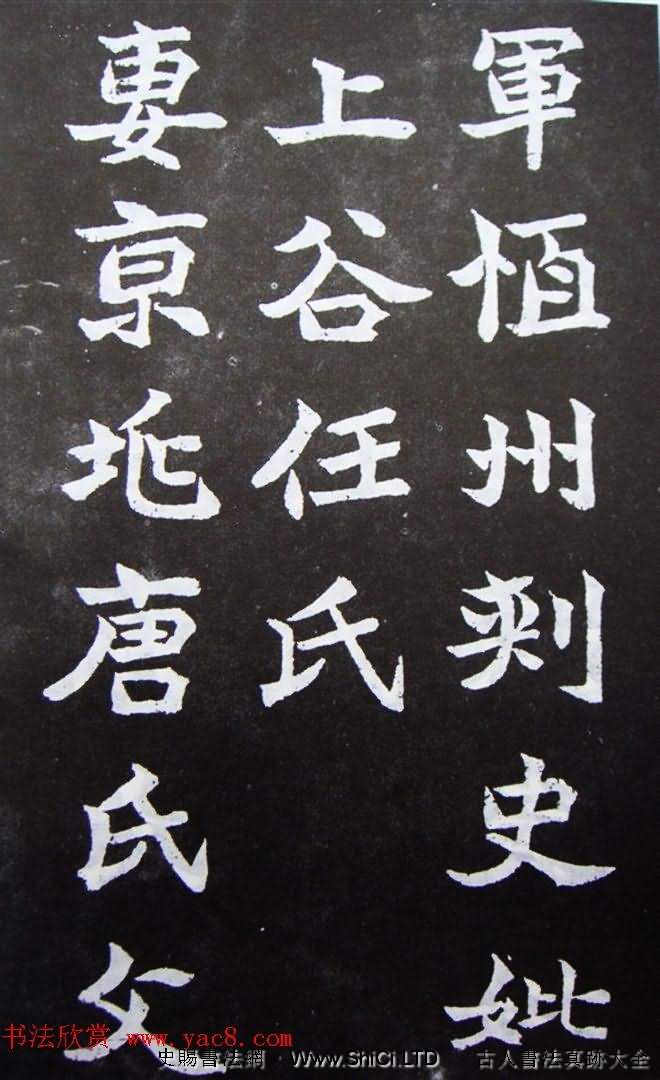 軍恒州刺史妣
上谷任氏
妻京兆唐氏父
书法欣赏 www.yac8.com
史賜書法網 · www.ShiCi.LTD 古人書法真跡大全